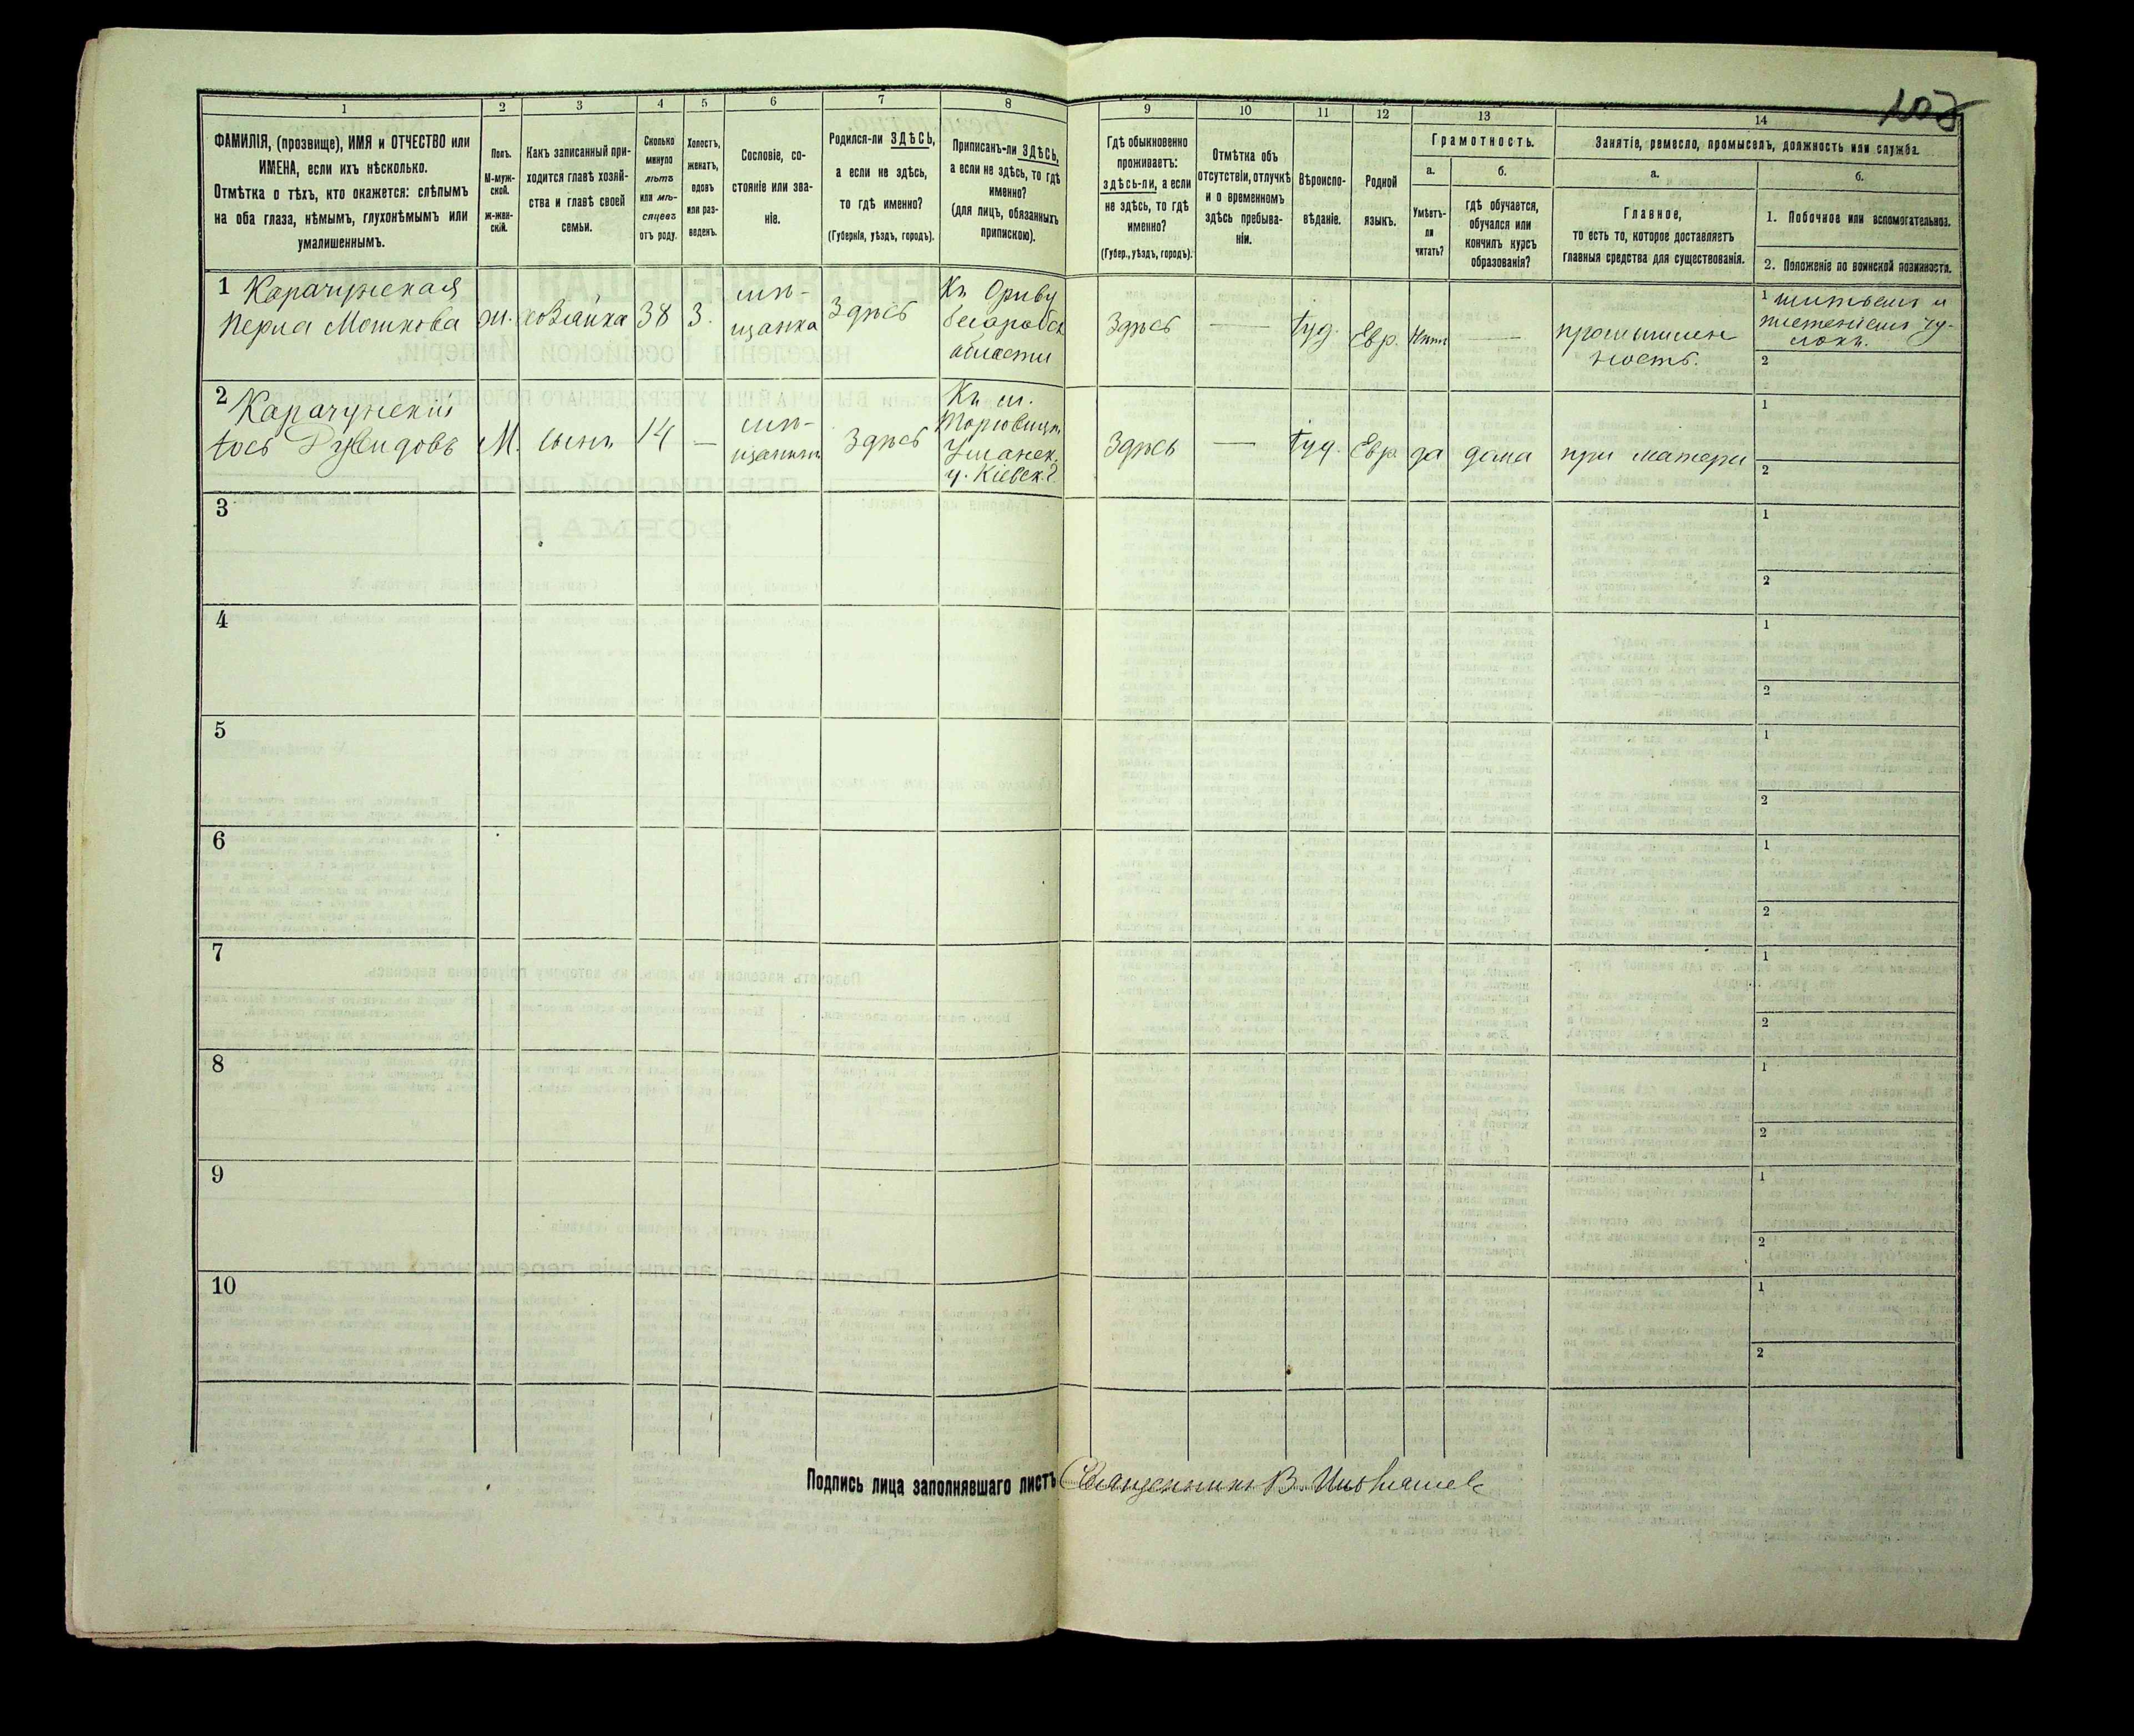 103
1
2
3
4
5
6
7
8
9
10
11
12
13
14
ФАМИЛІЯ, (прозвище), ИМЯ и ОТЧЕСТВО или
ИМЕНА, если ихъ нѣсколько.
Отмѣтка о тѣхъ, кто окажется: слѣпымъ
на оба глаза, нѣмымъ, глухонѣмымъ или
умалишеннымъ.
Полъ.
М-муж-
ской.
Ж-жен-
скій.
Какъ записанный при-
ходится главѣ хозяй-
ства и главѣ своей
семьи.
Сколько
минуло
лѣтъ
или мѣ-
сяцевъ
отъ роду.
Холостъ,
женатъ,
вдовъ
или раз-
веденъ.
Сословіе, со-
стояніе или зва-
ніе.
Родился-ли ЗДѢСЬ,
а если не здѣсь,
то гдѣ именно?
(Губернія, уѣздъ, городъ).
Приписанъ-ли ЗДѢСЬ,
а если не здѣсь, то гдѣ
именно?
(для лицъ, обязанныхъ
припискою).
Гдѣ обыкновенно
проживаетъ:
здѣсь-ли, а если
не здѣсь, то гдѣ
именно?
(Губер., уѣздъ, городъ).
Отмѣтка объ
отсутствіи, отлучкѣ
и о временномъ
здѣсь пребыва-
ніи.
Вѣроиспо-
вѣданіе.
Родной
языкъ.
Грамотность.
а.
б.
Умѣетъ-
ли
читать?
гдѣ обучается,
обучался или
кончилъ курсъ
образованія?
Занятіе, ремесло, промыселъ, должность или служба.
а.
б.
Главное,
то есть то, которое доставляетъ
главныя средства для существованія.
1. Побочное или вспомогательное.
2. Положеніе по воинской повинности.
1 Карачунская
Перла Мошкова
ж.
хозяйка
38
З.
мѣ-
щанка
Здѣсь
Къ Оргѣву
Бесарабск
области
Здѣсь
—
Іуд.
Евр.
Нѣтъ
—
промышлен
ность.
1 шитьемъ и
плетеніемъ чу-
локъ.
2
2 Карачунскій
Іось Дувидовъ
М.
сынъ
14
—
мѣ-
щанинъ
Здѣсь
Къ м.
Торговицѣ
Уманск.
у. Кіевск. г.
Здѣсь
—
Іуд.
Евр.
да
дома
при матери
1
2
3
1
2
4
1
2
5
1
2
6
1
2
7
1
2
8
1
2
9
1
2
10
1
2
Подпись лица заполнявшаго листъ Священникъ В.